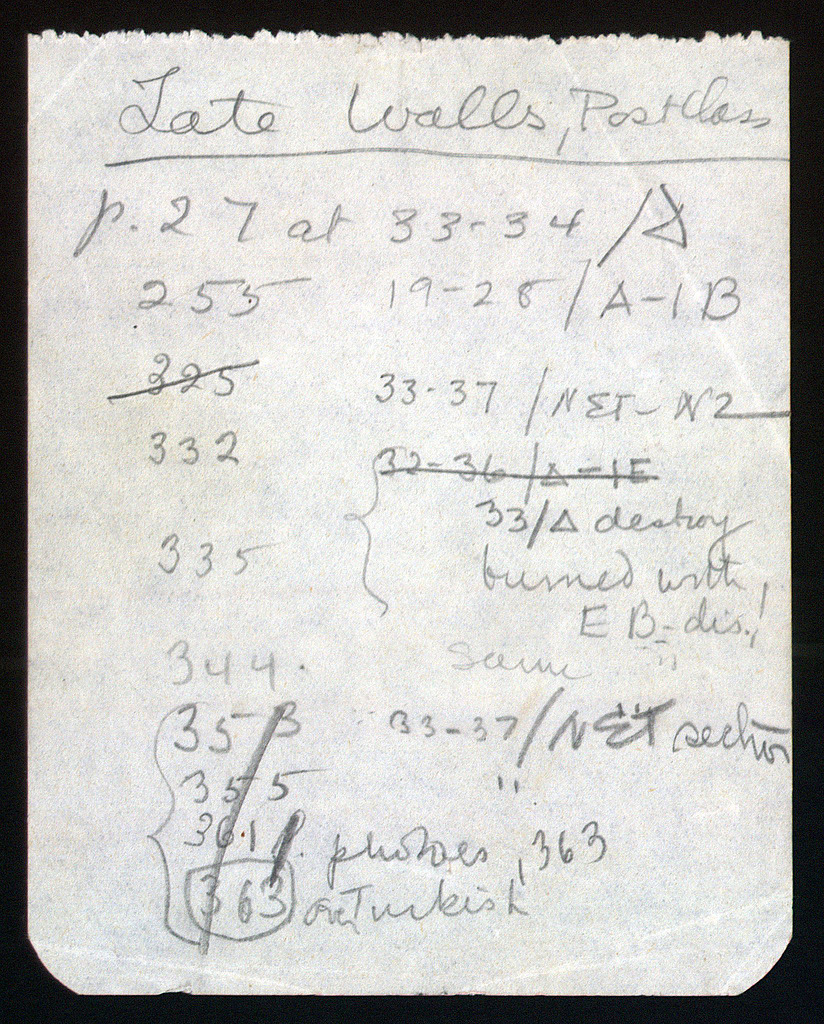 Late Walls, Postclass
p. 27 at 33-34 / Δ
255 19-28 / A-1B
325 33-37 / NET- N2
332 32-36 / Δ-1E
33/Δ destroy
335 burned with,
EB-dis.,
344. same "
353 33-37 / NET section
355 "
361 p. photoes, 363
363 Turkish